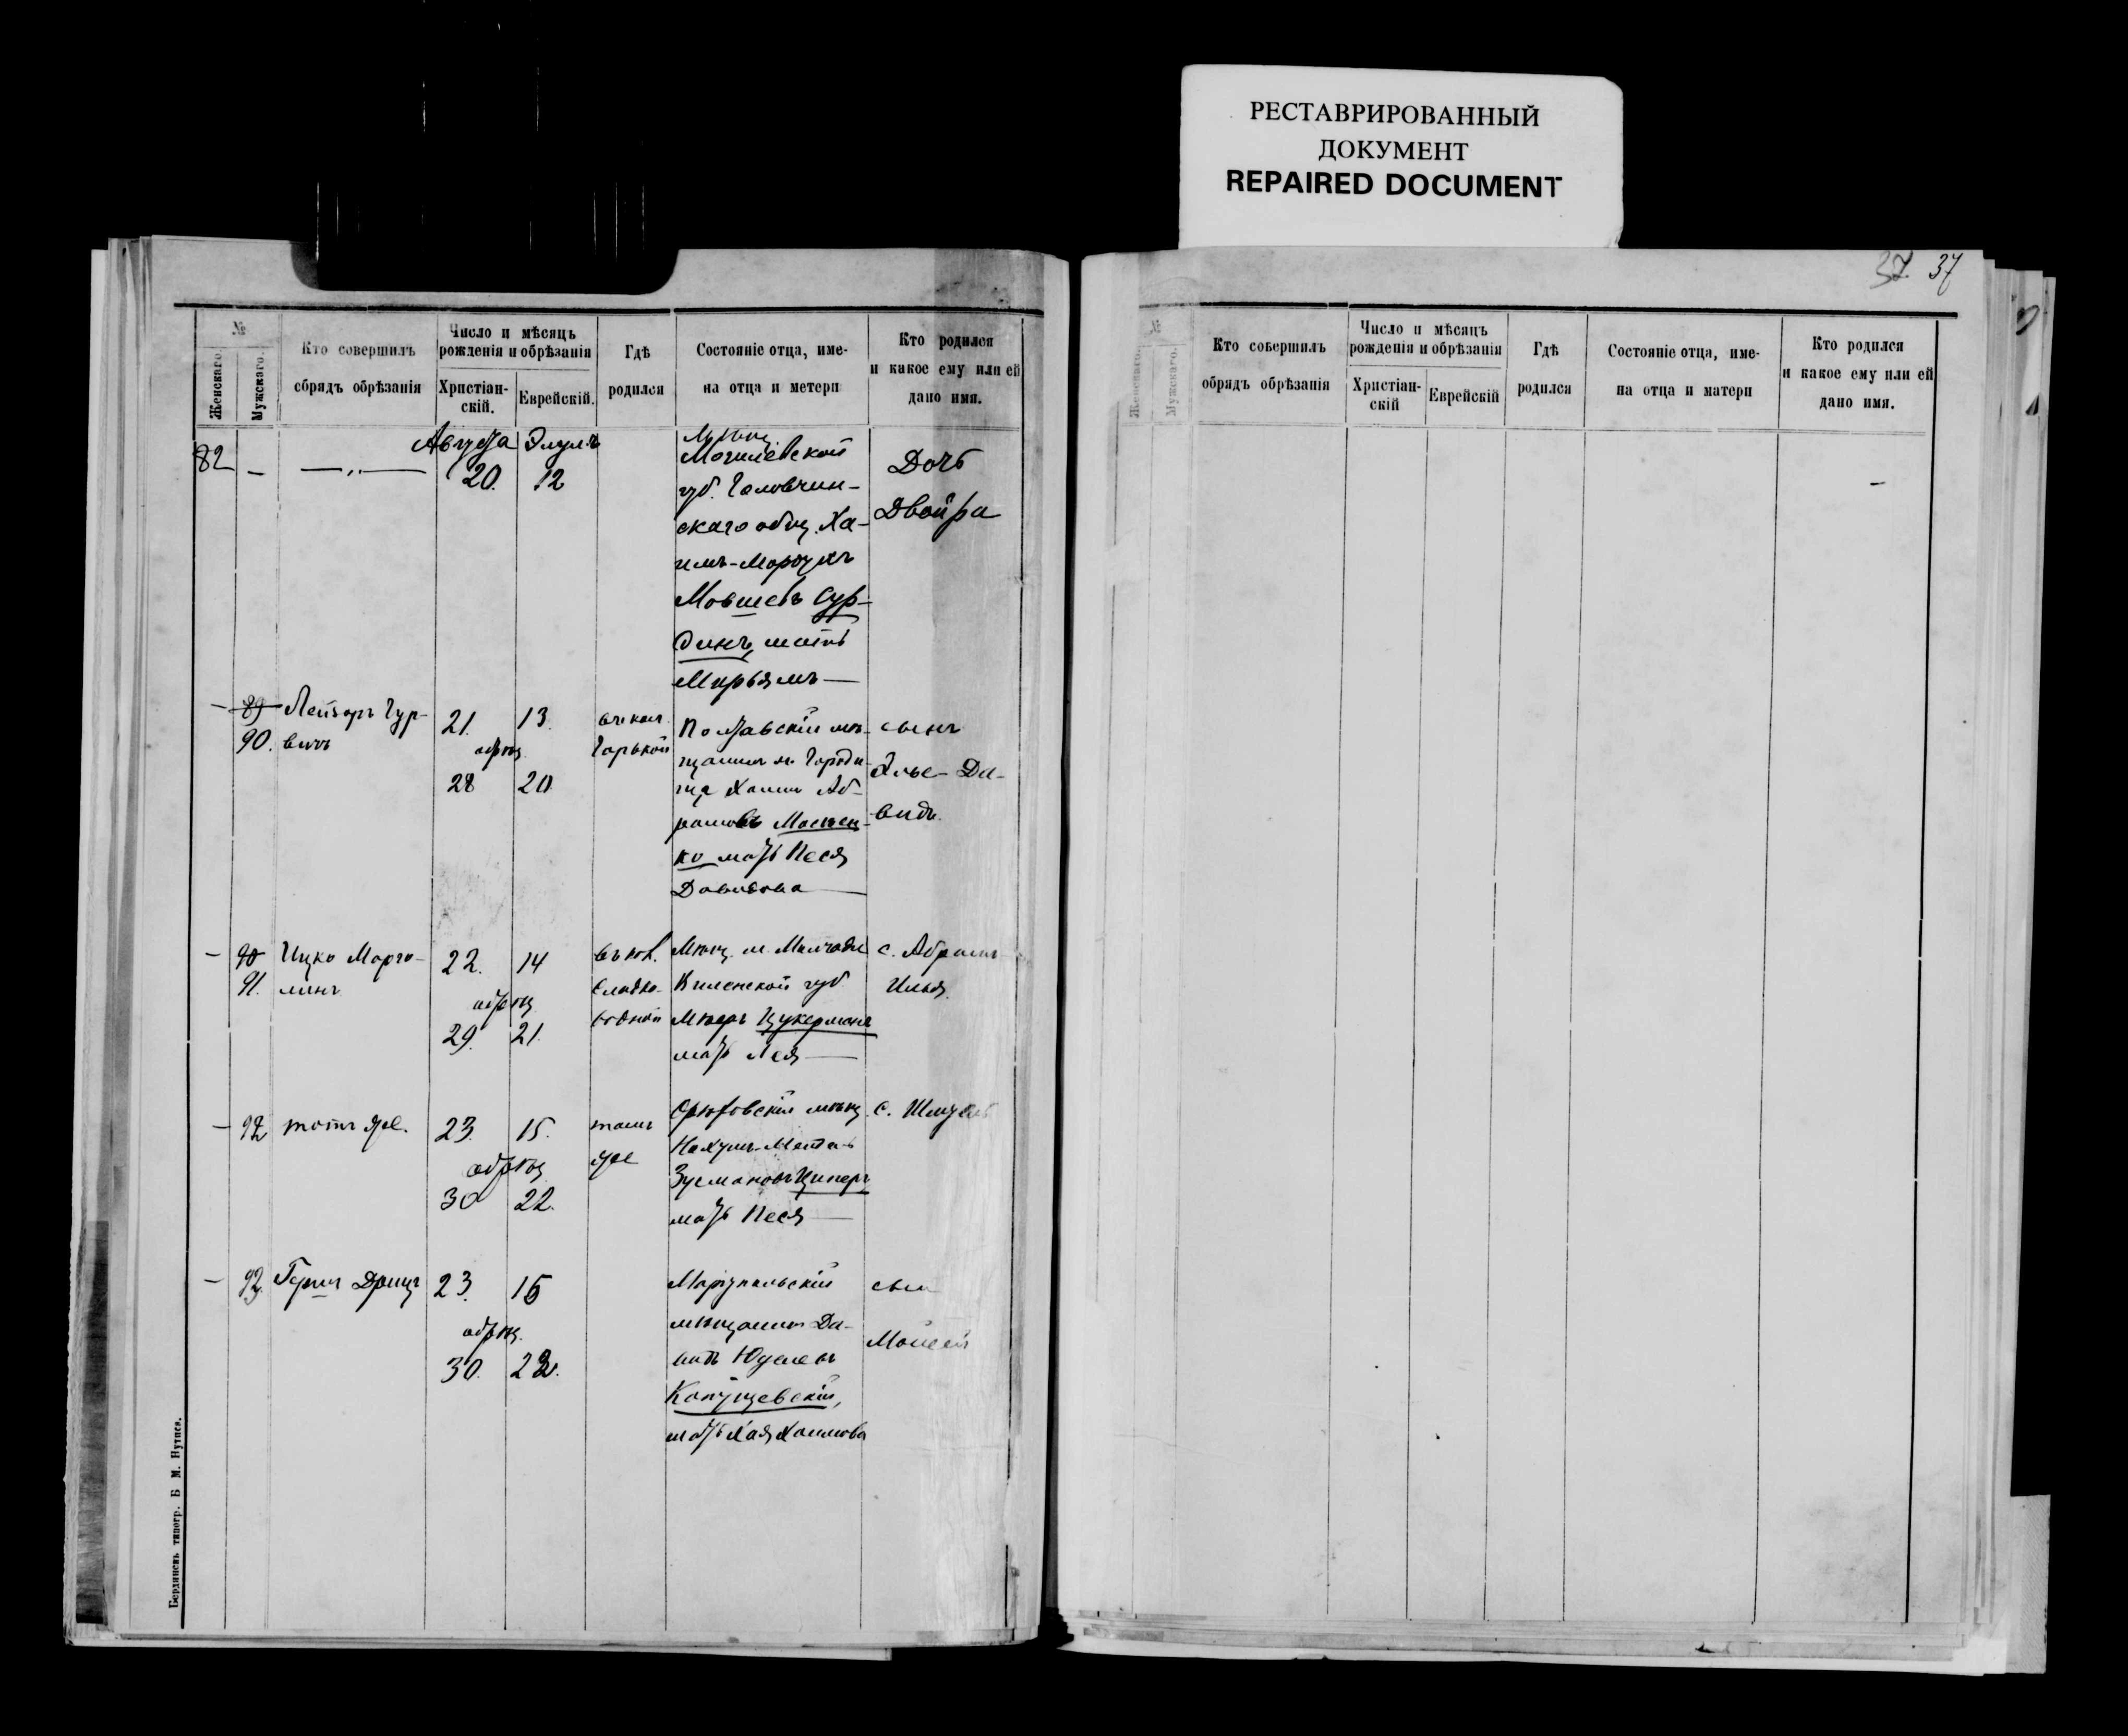 РЕСТАВРИРОВАННЫЙ
ДОКУМЕНТ
REPAIRED DOCUMENT
37 37
№
Женскаго.
Мужскаго.
Кто совершилъ
обрядъ обрѣзанія
Число и мѣсяцъ
рожденія и обрѣзанія
Христіан-
скій.
Еврейскій.
Гдѣ
родился
Состояніе отца, име-
на отца и метери
Кто родился
и какое ему или ей
дано имя.
Августа Элулъ
82 — —„— 20. 12
Мѣщ.
Могилевской
губ. Головчин-
скаго общ. Ха-
имъ-Мордухъ
Мовшевъ Сур-
динъ, мать
Мирьямъ —
Дочь
Двойра
— 89
90.
Лейзеръ Гур-
вичъ
21. 13.
обрѣз.
28 20
въ кол.
Горькой
Полтавскій мѣ-
щанинъ м. Городи-
ща Хаимъ Аб-
рамовъ
ко мать Песя
Давидова —
сынъ
Элье-Да-
видъ.
— 90
91.
Ицко Марго-
линъ
22. 14
обрѣз.
29. 21.
въ кол.
Сладко-
водной
Мѣщ. м.
Виленской губ.
Мееръ Цукерманъ
мать Лея —
с. Абрамъ
Илья
— 92 тотъ же.
23. 15.
обрѣз.
30 22.
тамъ
же
мѣщ.
Нахумъ-Мендель
Зусмановъ Циперъ
мать Песя —
с. Шмуель
— 93. Герш
23. 15
обрѣз.
30. 22.
Маріупольскій
мѣщанинъ Да-
видъ Юделевъ
мать Хая Хаимова
сын
Моисей
Бердянскъ типогр. Б М. Нутиса.
№
Женскаго.
Мужскаго.
Кто совершилъ
обрядъ обрѣзанія
Число и мѣсяцъ
рожденія и обрѣзанія
Христіан-
скій
Еврейскій
Гдѣ
родился
Состояніе отца, име-
на отца и матери
Кто родился
и какое ему или ей
дано имя.